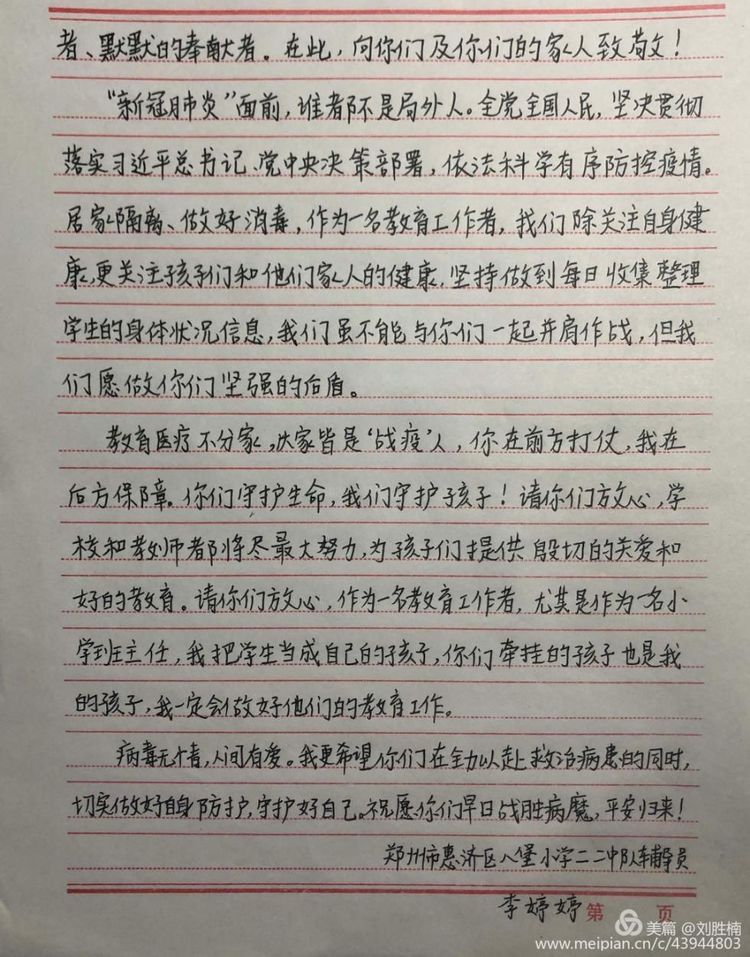 者、默默的奉献者。在此，向你们及你们的家人致敬！
“新冠肺炎”面前，谁都不是局外人。全党全国人民，坚决贯彻
落实习近平总书记、党中央决策部署，依法科学有序防控疫情。
居家隔离、做好消毒，作为一名教育工作者，我们除关注自身健
康，更关注孩子们和他们家人的健康，坚持做到每日收集整理
学生的身体状况信息，我们虽不能与你们一起并肩作战，但我
们愿做你们坚强的后盾。
教育医疗不分家，大家皆是‘战疫’人，你在前方打仗，我在
后方保障。你们守护生命，我们守护孩子！请你们放心，学
校和教师都将尽最大努力，为孩子们提供殷切的关爱和
好的教育。请你们放心，作为一名教育工作者，尤其是作为一名小
学班主任，我把学生当成自己的孩子，你们牵挂的孩子也是我
的孩子，我一定会做好他们的教育工作。
病毒无情，人间有爱。我更希望你们在全力以赴救治病患的同时，
切实做好自身防护，守护好自己。祝愿你们早日战胜病魔，平安归来！
郑州市惠济区八堡小学二二中队辅导员
李婷婷
第 页
美篇 @刘胜楠
www.meipian.cn/c/43944803